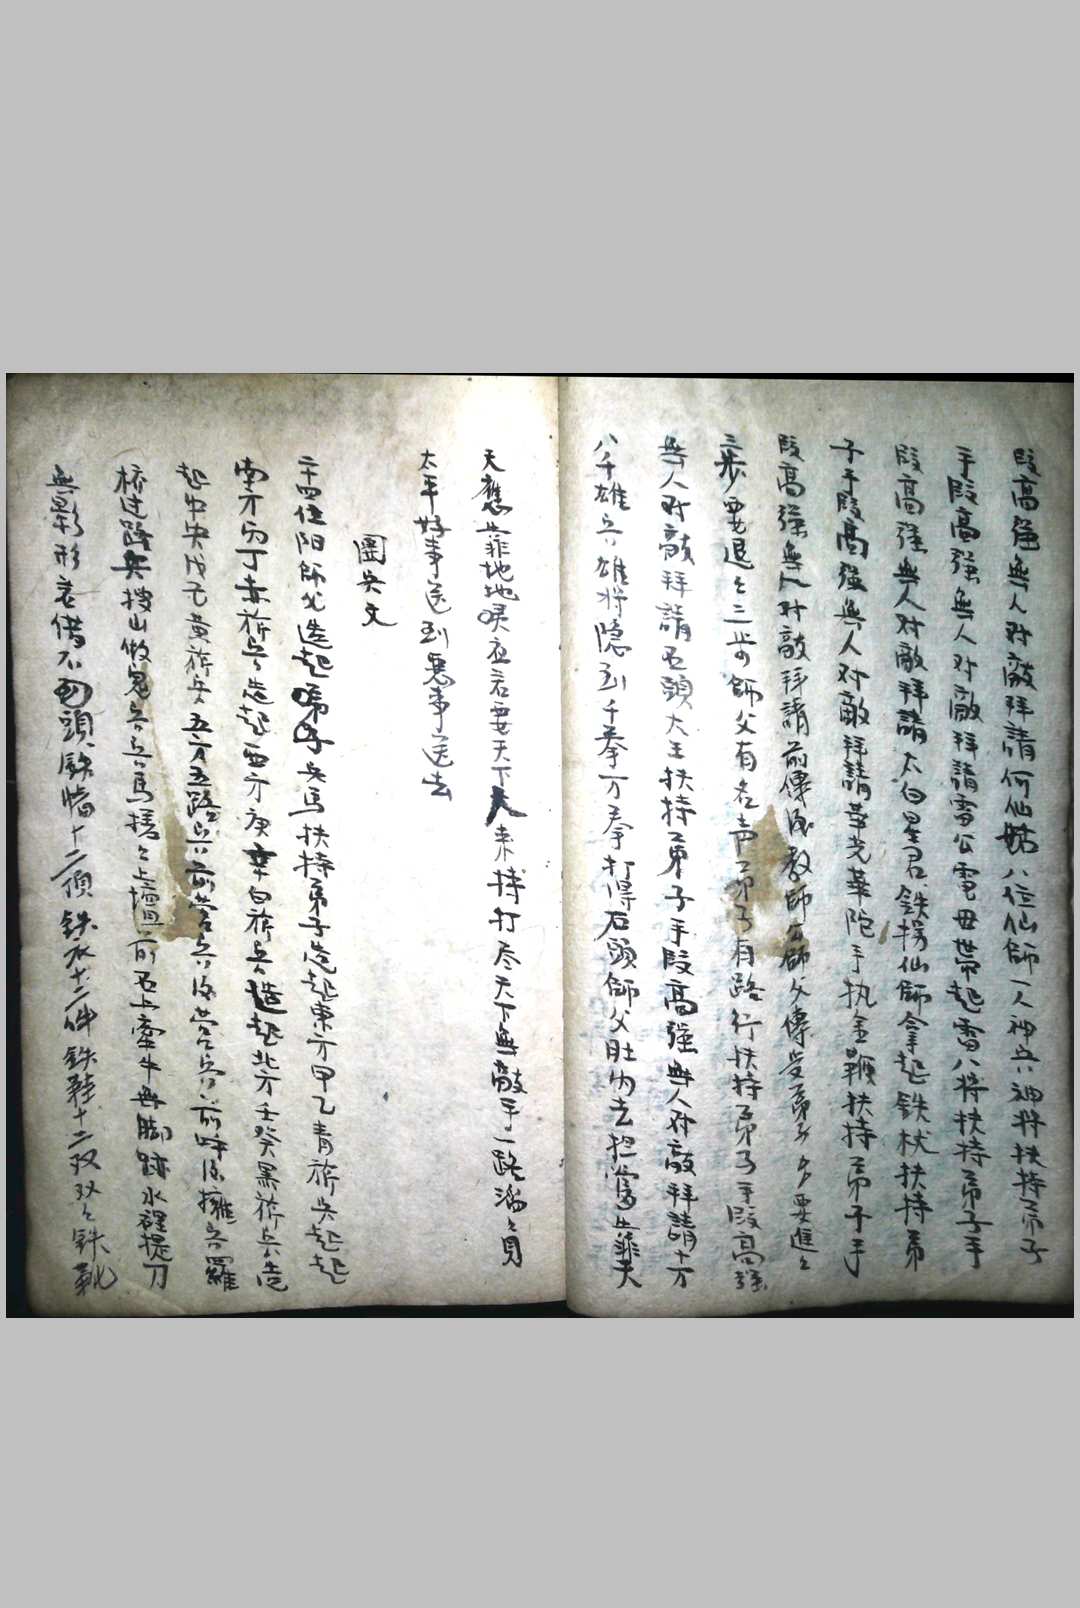 段高強無人对敵拜請何仙姑八位仙師一人神兵神将扶持弟子
手段高強無人对敵拜請雷公電母帶起雷八将扶持弟子手
段高強無人对敵拜請太白星君鉄拐仙師拿起鉄杖扶持弟
子手段高強無人对敵拜請華光華陀手执金鞭扶持弟子手
段高強無人对敵拜請前傳後教師公師父傳受弟子要進々
三步要退々三步師父有名声弟子有路行扶持弟子手段高強
無人对敵拜請石頭大王扶持弟子手段高強無人对敵拜請十万
八千雄兵雄将隐到千拳万拳打得石頭師父肚内去担當
天應地地應若要天下人来持打尽天下無敵手一路
太平好事送到惡事送去
團兵文
二十四位阳師父造起兵馬扶持弟子造起東方甲乙青旂兵起起
南方丙丁赤旂兵造起西方庚辛白旂兵造起北方壬癸黑旂兵造
起中央戊己黄旂兵五方五路兵前营兵後营兵前呼後擁兵羅
橋过路兵搜山做鬼兵兵馬上壇前石上牽牛無脚跡水裡提刀
無影形若借不頭鉄帽十二頂鉄衣十二件鉄鞋十二双双々鉄靴